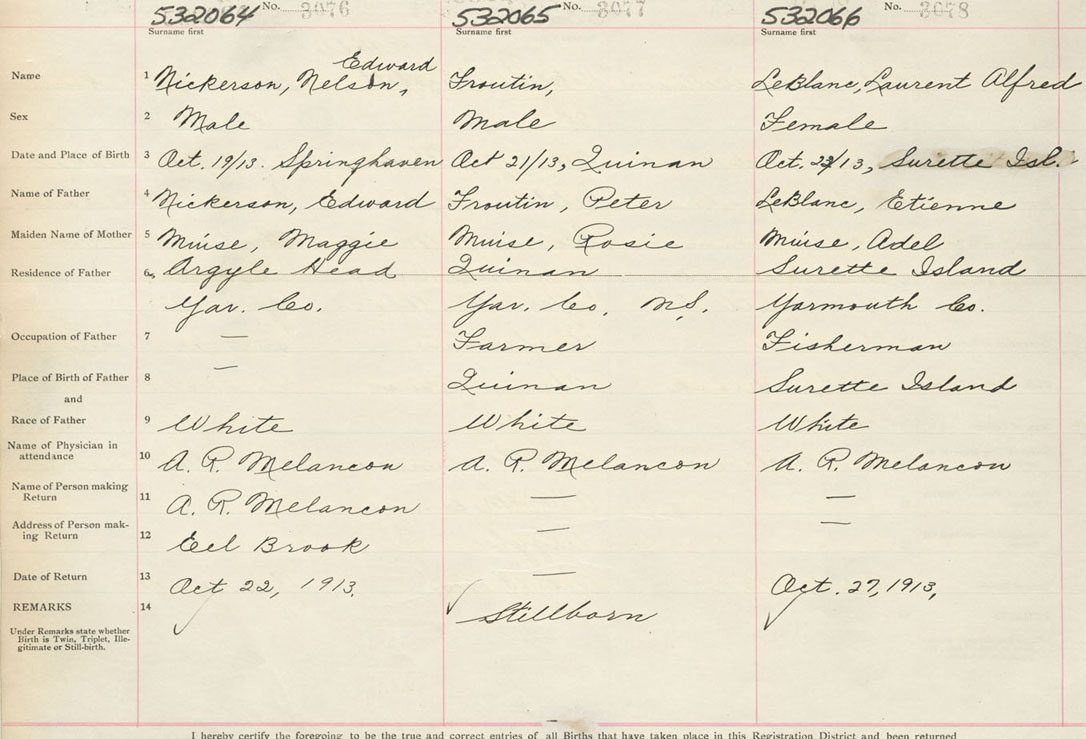 532064 No. 3076 532065 No. 3077 532066 No. 3078
Surname first Surname first Surname first
Edward
Name 1 Nickerson, Nelson, Froutin, LeBlanc, Laurent Alfred
Sex 2 Male Male Female
Date and Place of Birth 3 Oct. 19/13. Springhaven Oct 21/13, Quinan Oct. 23/13, Surette Isl.
Name of Father 4 Nickerson, Edward Froutin, Peter LeBlanc, Etienne
Maiden Name of Mother 5 Muise, Maggie Muise, Rosie Muise, Adel
Residence of Father 6 Argyle Head Quinan Surette Island
Yar. Co. Yar. Co. N.S. Yarmouth Co.
Occupation of Father 7 — Farmer Fisherman
Place of Birth of Father 8 — Quinan Surette Island
and
Race of Father 9 White White White
Name of Physician in
attendance 10 A. R. Melancon A. R. Melancon A. R. Melancon
Name of Person making
Return 11 A. R. Melancon — —
Address of Person mak-
ing Return 12 Eel Brook — —
Date of Return 13 Oct 22, 1913. — Oct. 27, 1913,
REMARKS 14 Stillborn
Under Remarks state whether
Birth is Twin, Triplet, Ille-
gitimate or Still-birth.
I hereby certify the foregoing to be the true and correct entries of all Births that have taken place in this Registration District and been returned